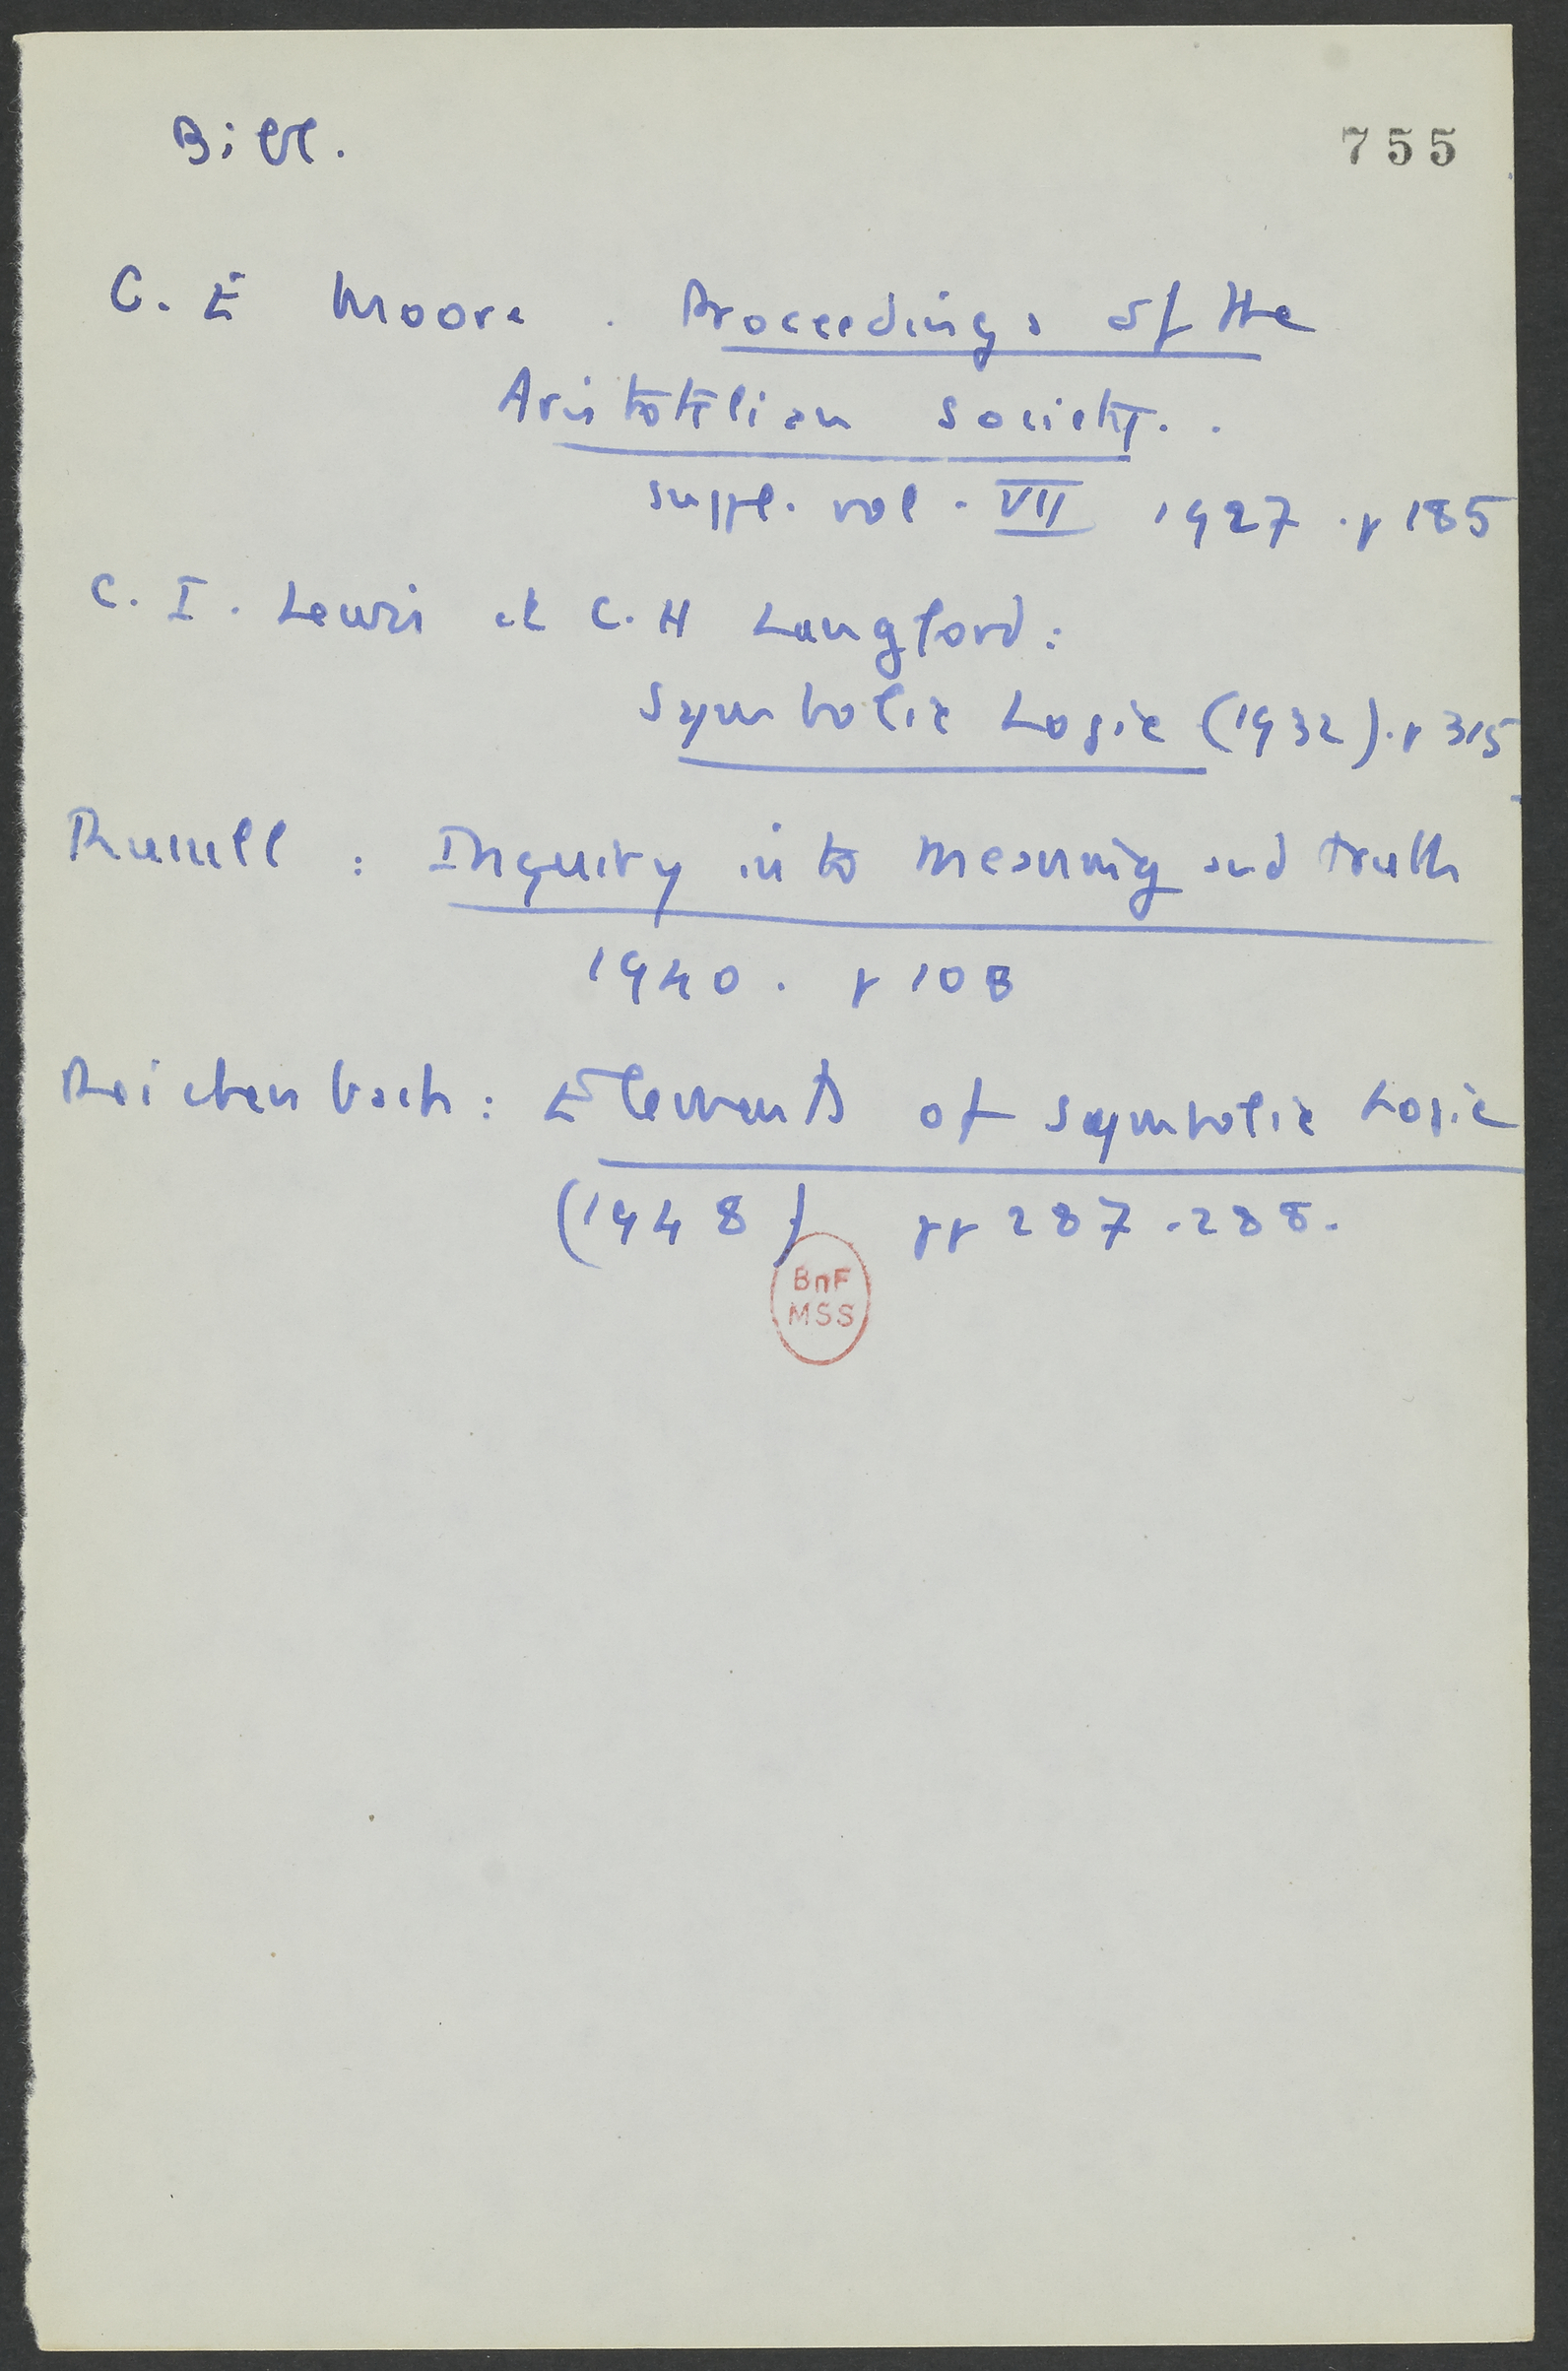 Bibl.
755
G. E Moore. Proceedings of the
Aristotelian Society..
suppl. vol. VII 1927. p 185
C. I. Lewis et C. H Langford:
Symbolic Logic (1932). p 315
Russell: Inquiry into meaning and truth
1940. p 108
Reichenbach: Elements of symbolic Logic
(1948) pp 287-288.
BnF
MSS